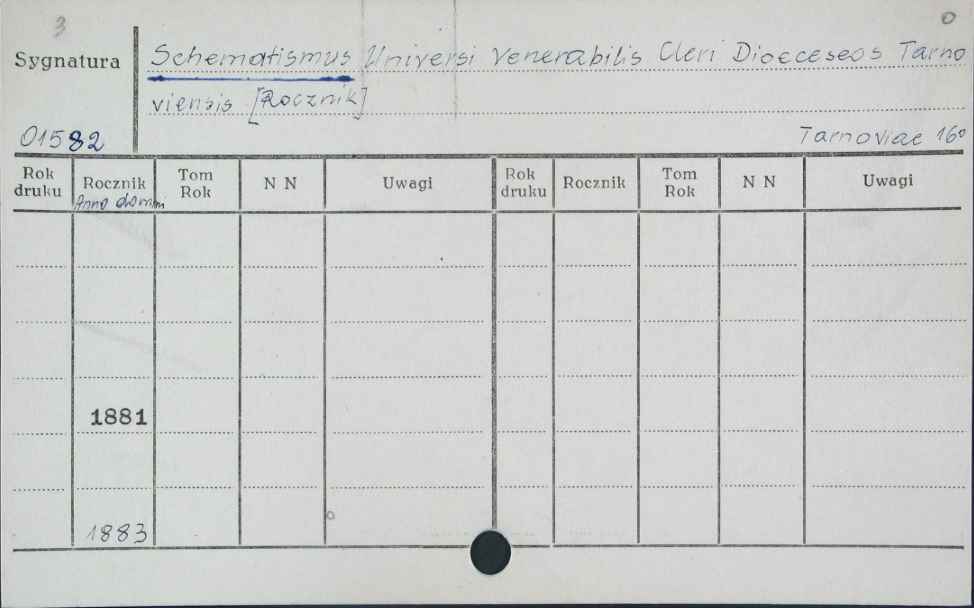 3 0
Sygnatura Schematismus Universi Venerabilis Cleri Dioeceseos Tarno
viensis [Rocznik]
01582 Tarnoviae 16°
Rok druku Rocznik Tom Rok N N Uwagi Rok druku Rocznik Tom Rok N N Uwagi
Anno domini
1881
1883